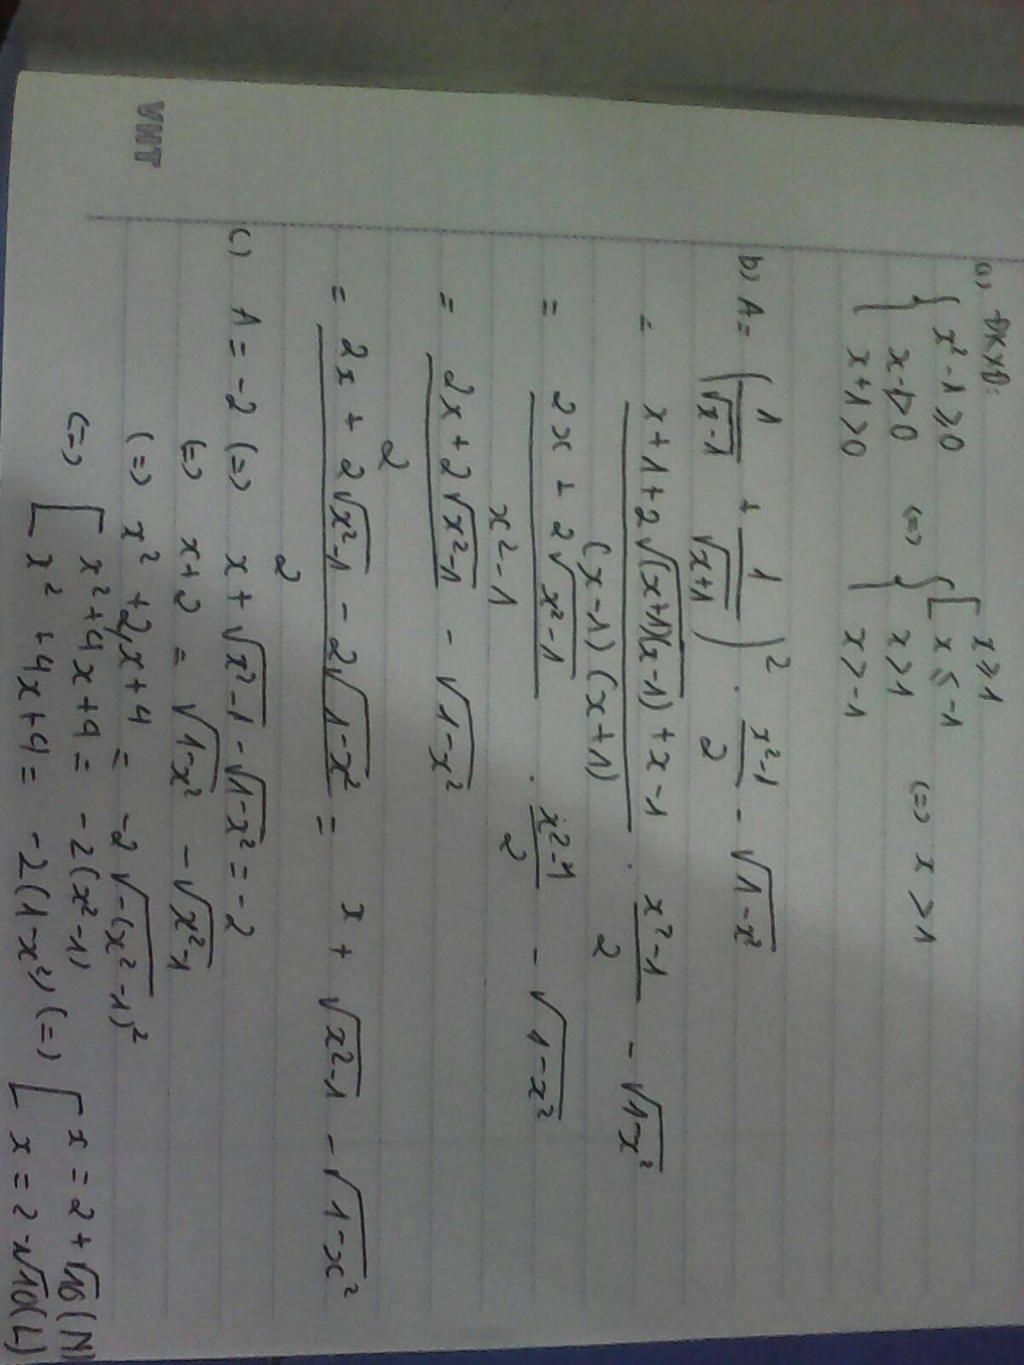 VHT
a) ĐKXĐ:
{ x² - 1 ≥ 0
x - 1 > 0
x + 1 > 0
<=> { [ x ≥ 1
x ≤ -1
x > 1
x > -1
<=> x > 1
b) A = (1/√x-1 + 1/√x+1)² . x²-1/2 - √1-x²
= x+1+2√(x+1)(x-1) + x-1/(x-1)(x+1) . x²-1/2 - √1-x²
= 2x + 2√x²-1/x²-1 . x²-1/2 - √1-x²
= 2x + 2√x²-1/2 - √1-x²
= 2x + 2√x²-1 - 2√1-x²/2 = x + √x²-1 - √1-x²
c) A = -2 (=) x + √x²-1 - √1-x² = -2
(=) x+2 = √1-x² - √x²-1
(=) x² + 2x+4 = -2√-(x²-1)²
(=) [ x² + 4x + 4 = -2(x²-1)
x² + 4x + 4 = -2(1-x²) (=) [ x = 2 + √10 (N)
x = 2 - √10 (L)